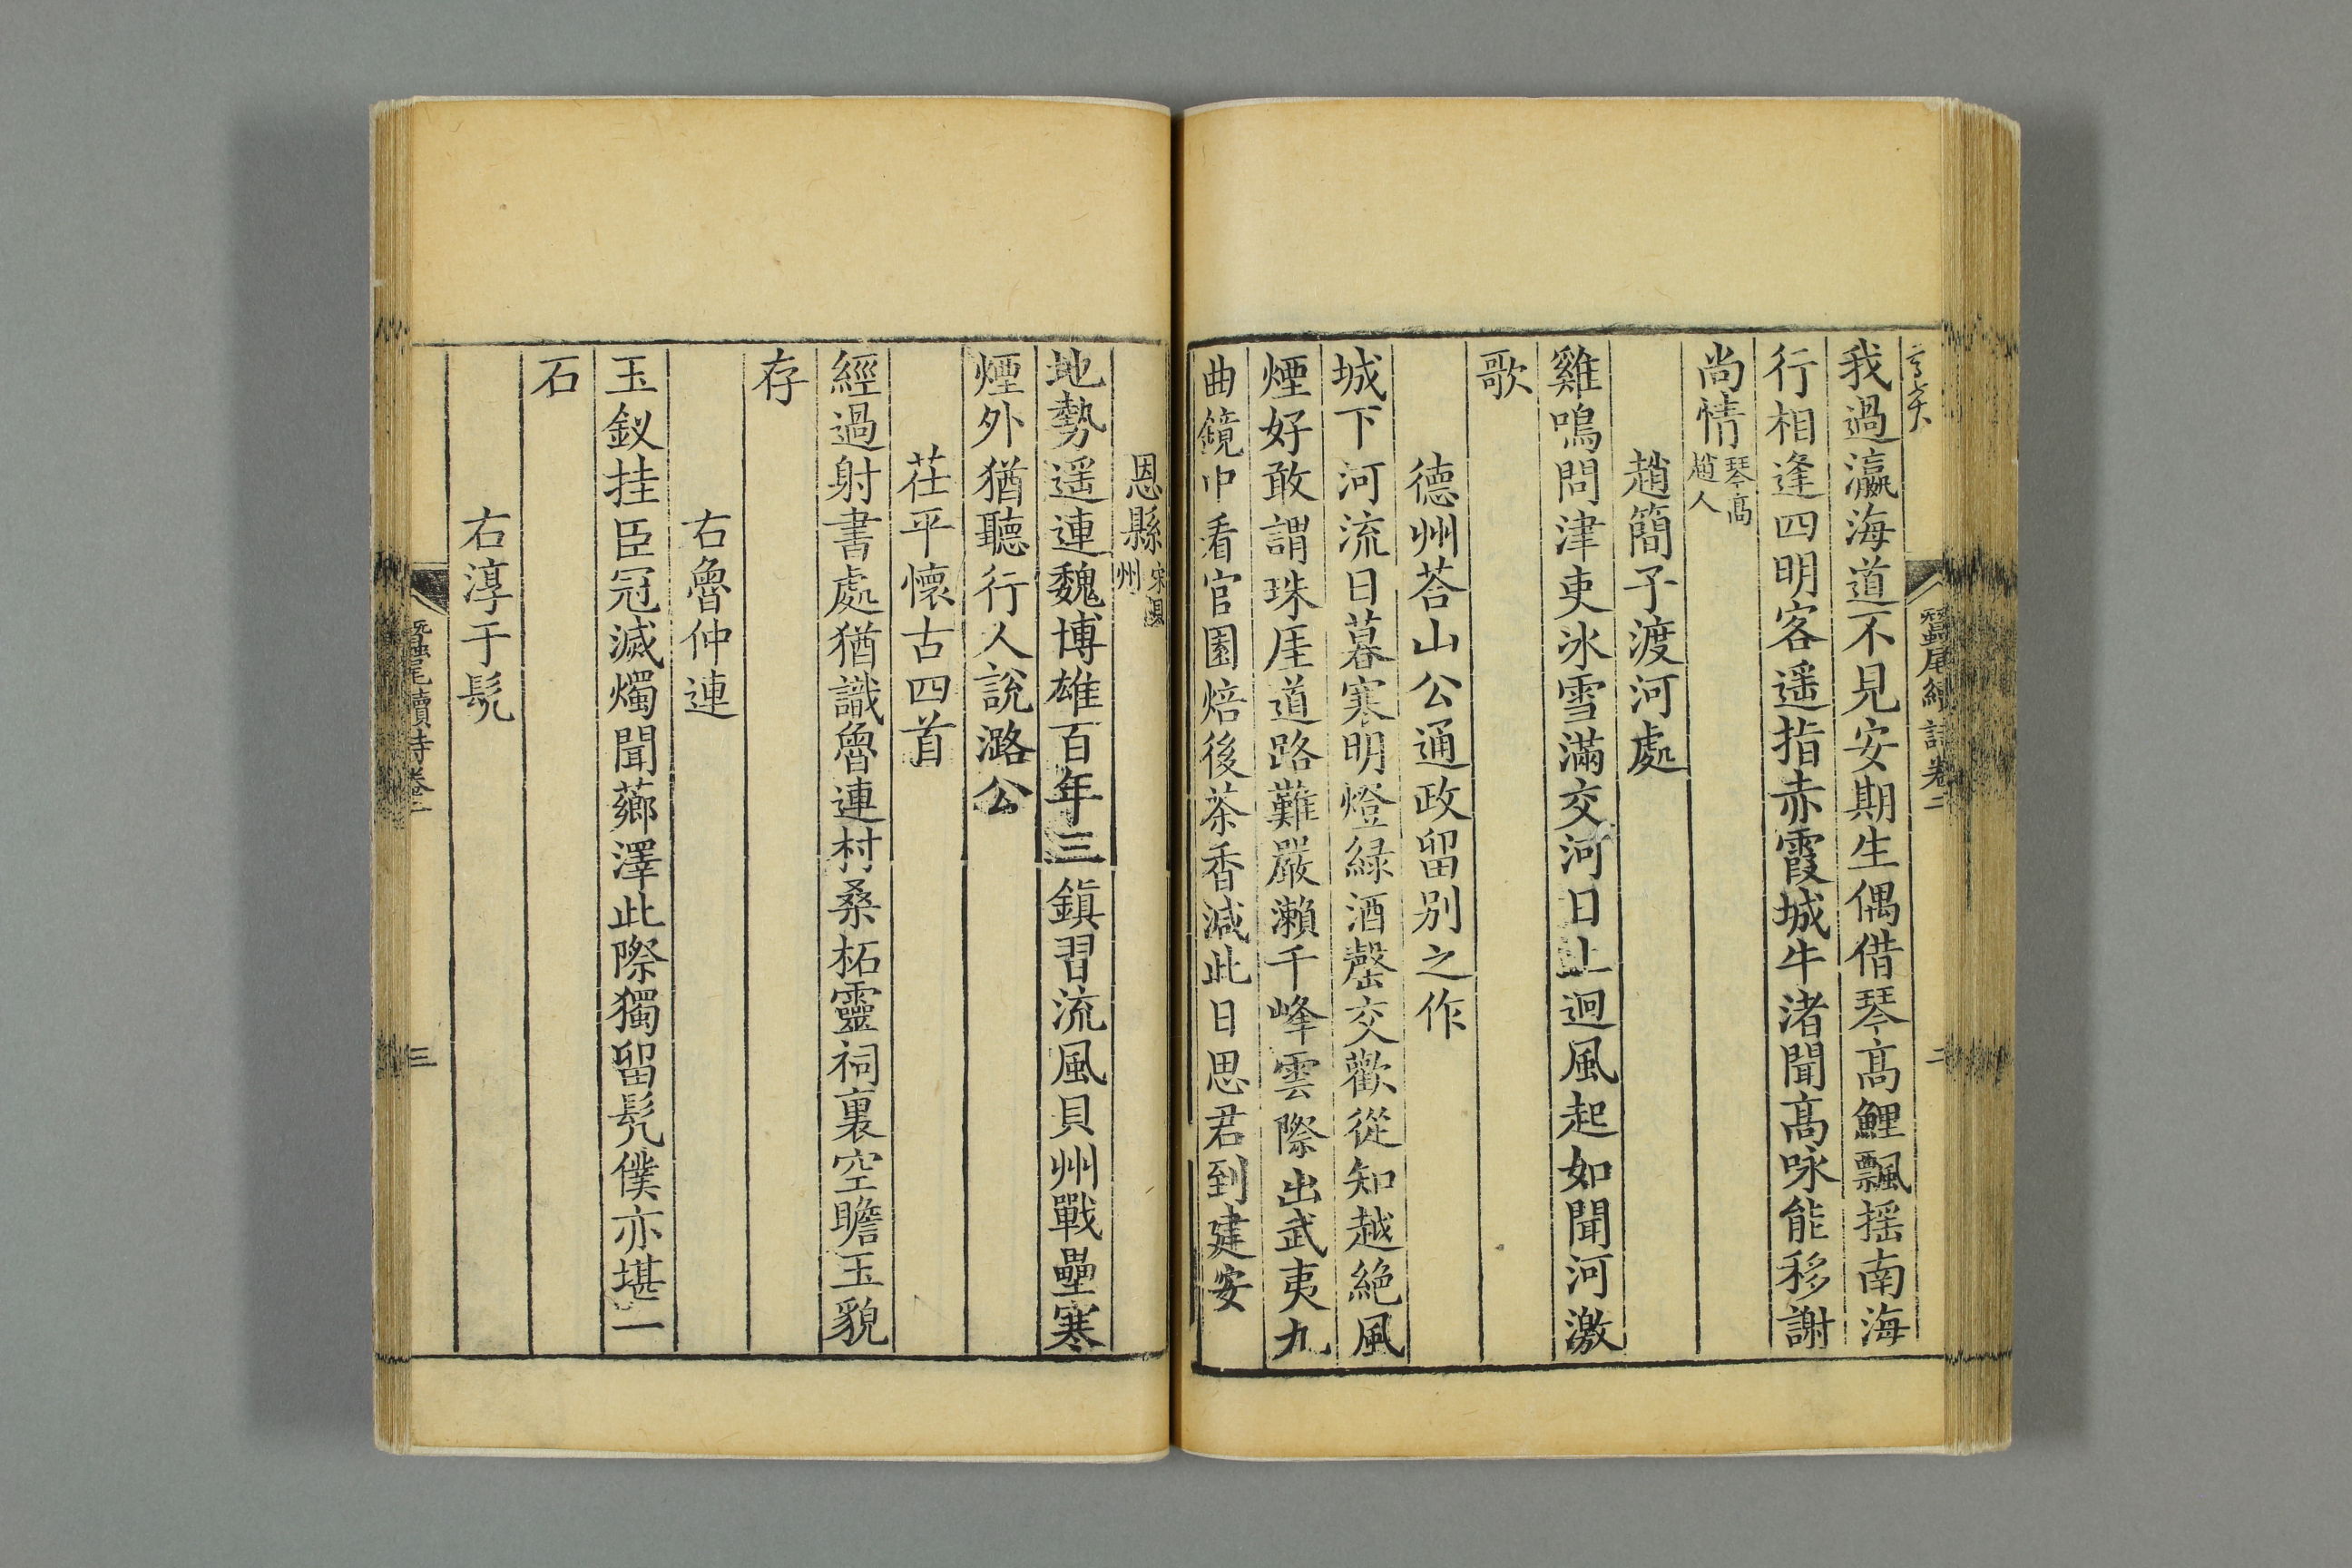 我過瀛海道不見安期生偶借琴高鯉飄摇南海
行相逢四明客遥指赤霞城牛渚聞高咏能移謝
尚情琴高趙人
趙簡子渡河處
雞鳴問津吏冰雪滿交河日上迴風起如聞河激
歌
德州荅山公通政留别之作
城下河流日暮寒明燈緑酒罄交歡從知越絶風
煙好敢謂珠厓道路難嚴瀨千峰雲際出武夷九
曲鏡中看官園焙後茶香減此日思君到建安
恩縣宋貝州
地勢遥連魏博雄百年三鎮習流風貝州戰壘寒
煙外猶聽行人說潞公
茌平懷古四首
經過射書處猶識魯連村桑柘靈祠裏空瞻玉貌
存
右魯仲連
玉釵挂臣冠滅燭聞薌澤此際獨留髡僕亦堪一
石
右淳于髡
蠶尾續詩卷二
二
蠶尾續詩卷二
三